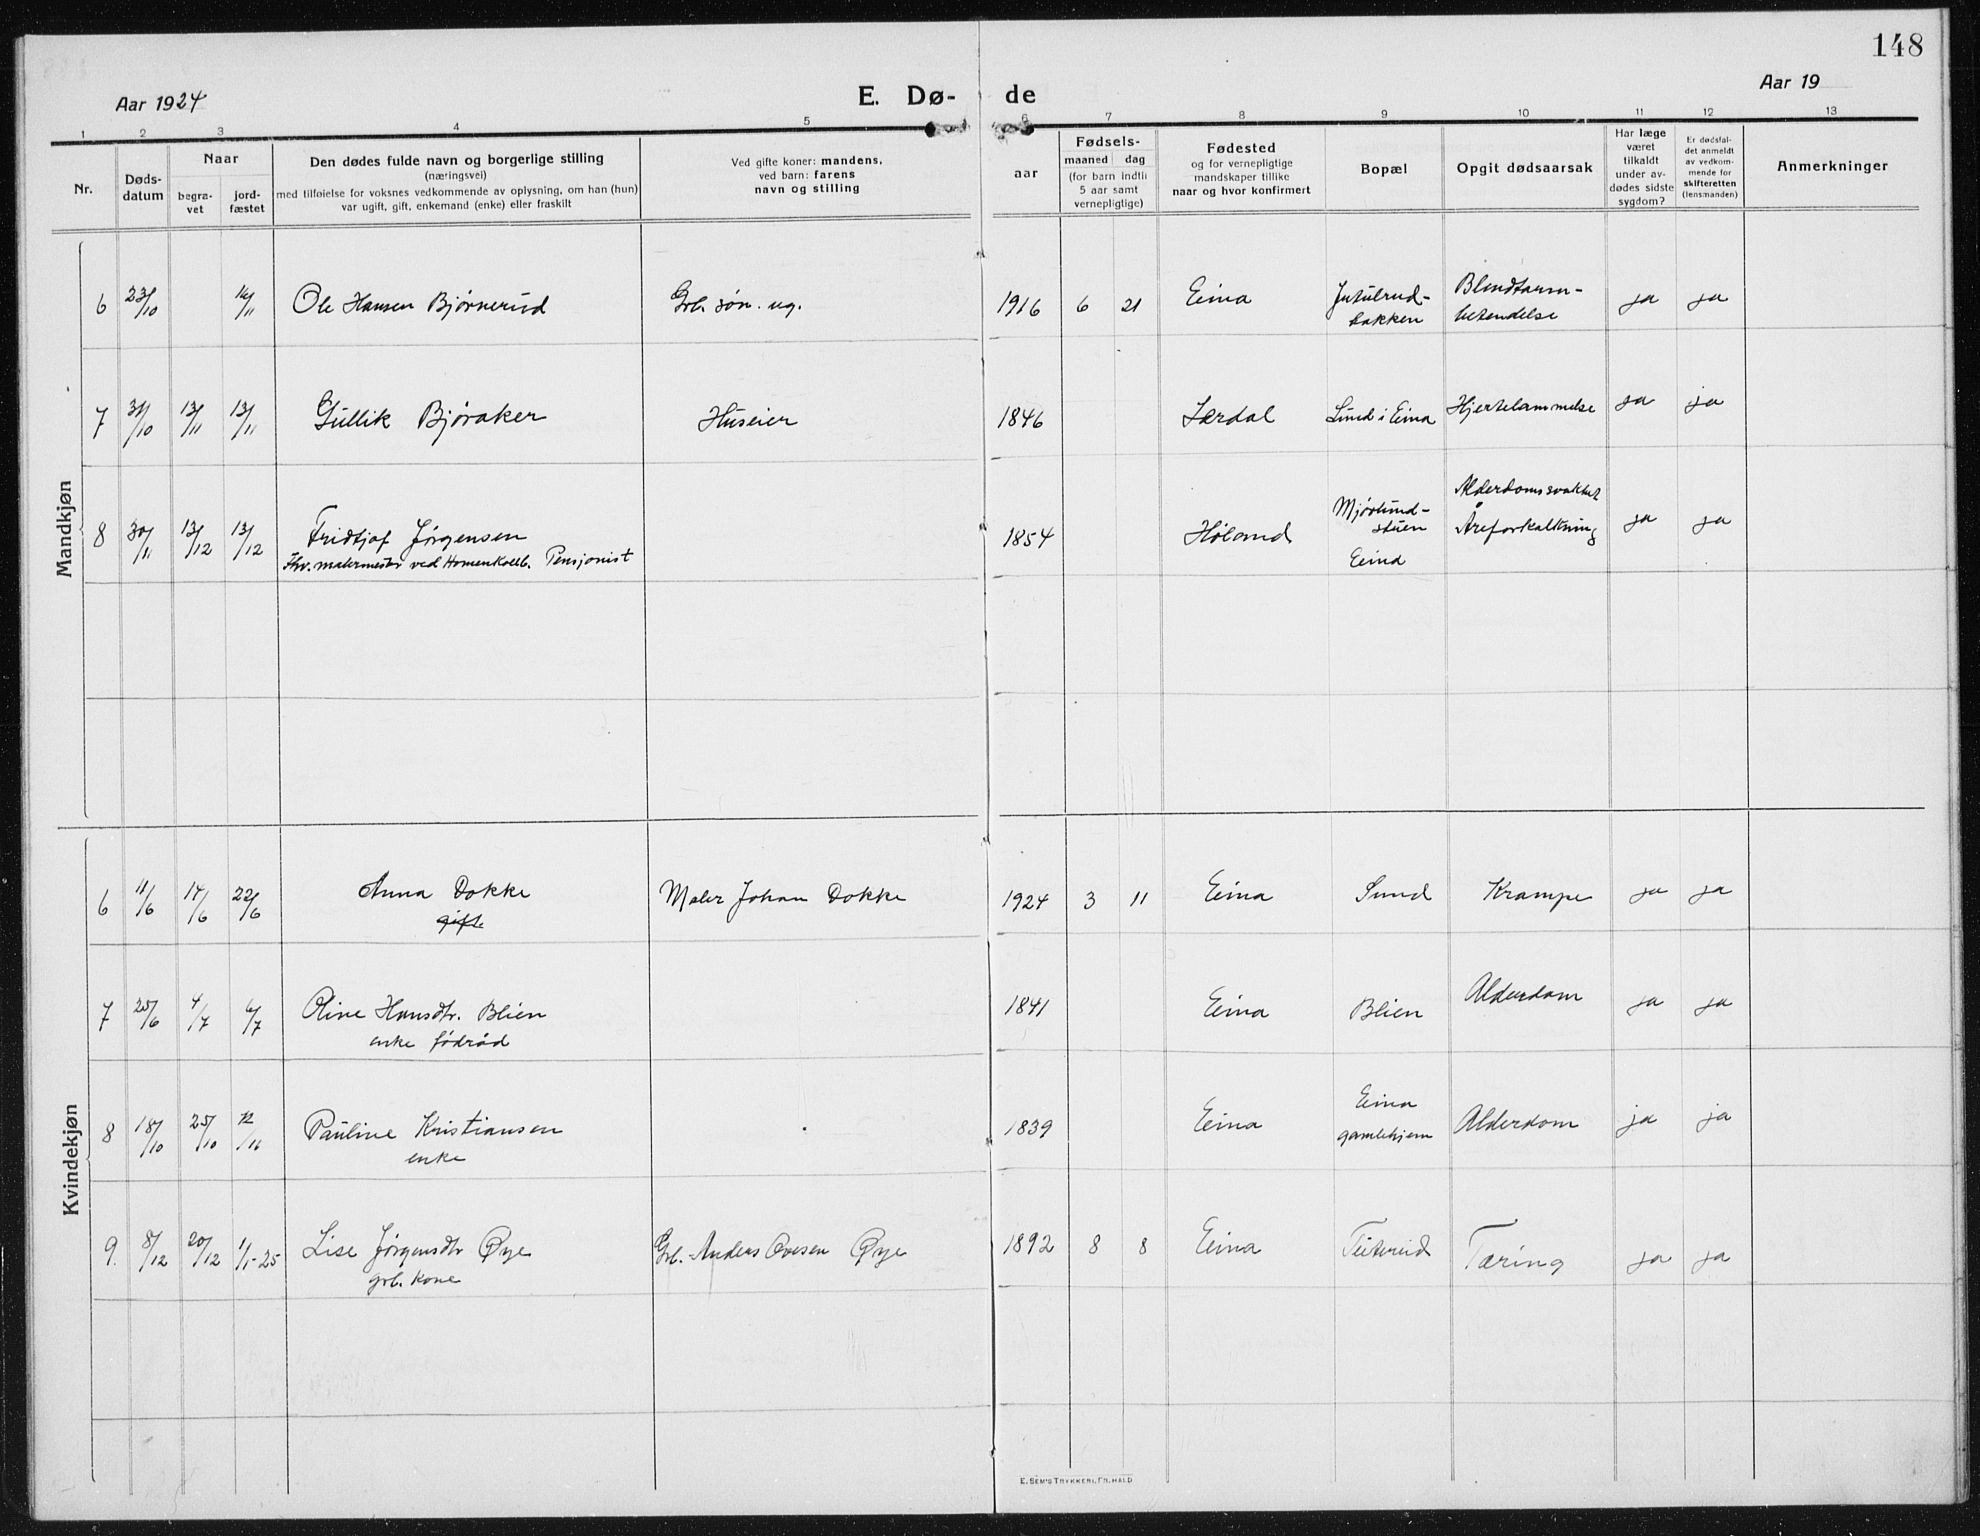 148
Aar 1924 E. Dø- de Aar 19
1 2 3 4 5 6 7 8 9 10 11 12 13
Nr.
Døds-
datum
Naar
begra-
vet
jord-
fæstet
Den dødes fulde navn og borgerlige stilling
(næringsvei)
med tilføielse for voksnes vedkommende av oplysning, om han (hun)
var ugift, gift, enkemand (enke) eller fraskilt
Ved gifte koner: mandens,
ved barn: farens
navn og stilling
aar
Fødsels-
maaned dag
(for barn indtil
5 aar samt
vernepligtige)
Fødested
og for vernepligtige
mandskaper tillike
naar og hvor konfirmert
Bopæl
Opgit dødsaarsak
Har læge
været
tilkaldt
under av-
dødes sidste
sygdom?
Er dødsfal-
det anmeldt
av vedkom-
mende for
skifteretten
(lensmanden)
Anmerkninger
Mandkjøn
6 23/10 Ole Hansen Bjørnerud Grb. søn. ug. 1916 6 21 Eina Jutulrud-
bakken
Blindtarm-
betendelse
ja ja
7 13/11 13/11 Gullik Bjøraker Huseier 1846 Lærdal Sund i Eina Hjertelammelse ja ja
8 30/11 13/12 13/12 Fridtjof Jørgensen
Fhv. malermester ved Pensjonist
1854 Høland
Mjørlund-
stuen
Eina
Alderdomssvakhet
Åreforkalkning
ja ja
Kvindekjøn
6 11/6 14/6 22/6 Anna Dokke
gift
Maler Johan Dokke 1924 3 11 Eina Sund Krampe ja ja
7 25/6 4/7 6/7 Oline Hansdtr. Blien
enke fødråd
1841 Eina Blien Alderdom ja ja
8 18/10 25/10 Pauline Kristiansen
enke
1839 Eina
Eina
gamlehjem
Alderdom ja ja
9. 8/12 20/12 1/1-25 Lise Jørgensdtr Øye
grb. kone
Grb. Anders Ovesen Øye 1892 8 8 Eina Tæring ja ja
E. SEM'S TRYKKERI, FR. HALD